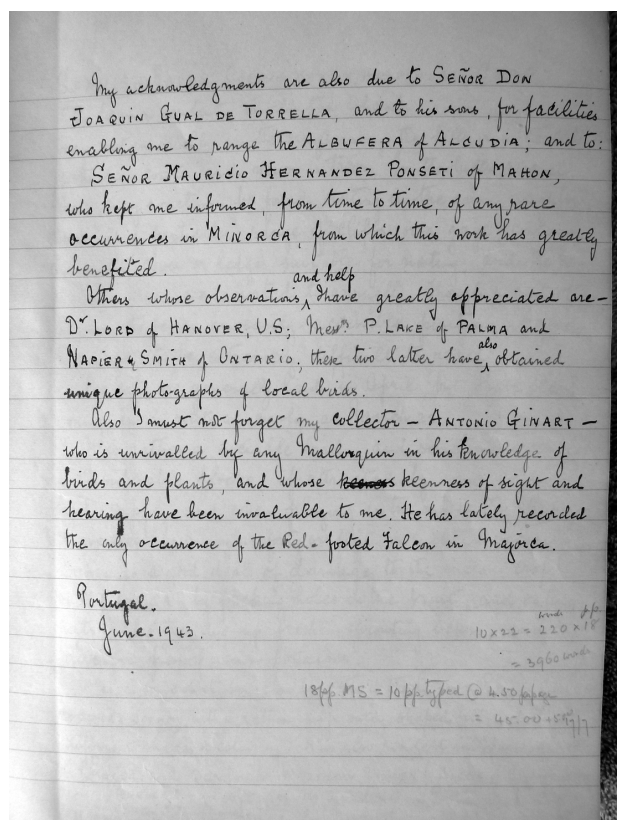 My acknowledgments are also due to SEÑOR DON
JOAQUIN GUAL DE TORRELLA, and to his sons, for facilities
enabling me to range the ALBUFERA of ALCUDIA; and to:
SEÑOR MAURICIO HERNANDEZ PONSETI of MAHON,
who kept me informed, from time to time, of any rare
occurrences in MINORCA, from which this work has greatly
benefited.
and help
Others whose observations, I have greatly appreciated are-
Dr. LORD of HANOVER, U.S; Messrs P. LAKE of PALMA and
also
NAPIER SMITH of ONTARIO; these two latter have obtained
unique photographs of local birds.
Also I must not forget my collector - ANTONIO GINART -
who is unrivalled by any Mallorquin in his knowledge of
birds and plants, and whose keenness keenness of sight and
hearing have been invaluable to me. He has lately recorded
the only occurrence of the Red-footed Falcon in Majorca.
Portugal.
June. 1943.
words pp.
10 x 22 = 220 x 18
= 3960 words
18 pp. MS = 10 pp. typed @ 4.50
= 45.00